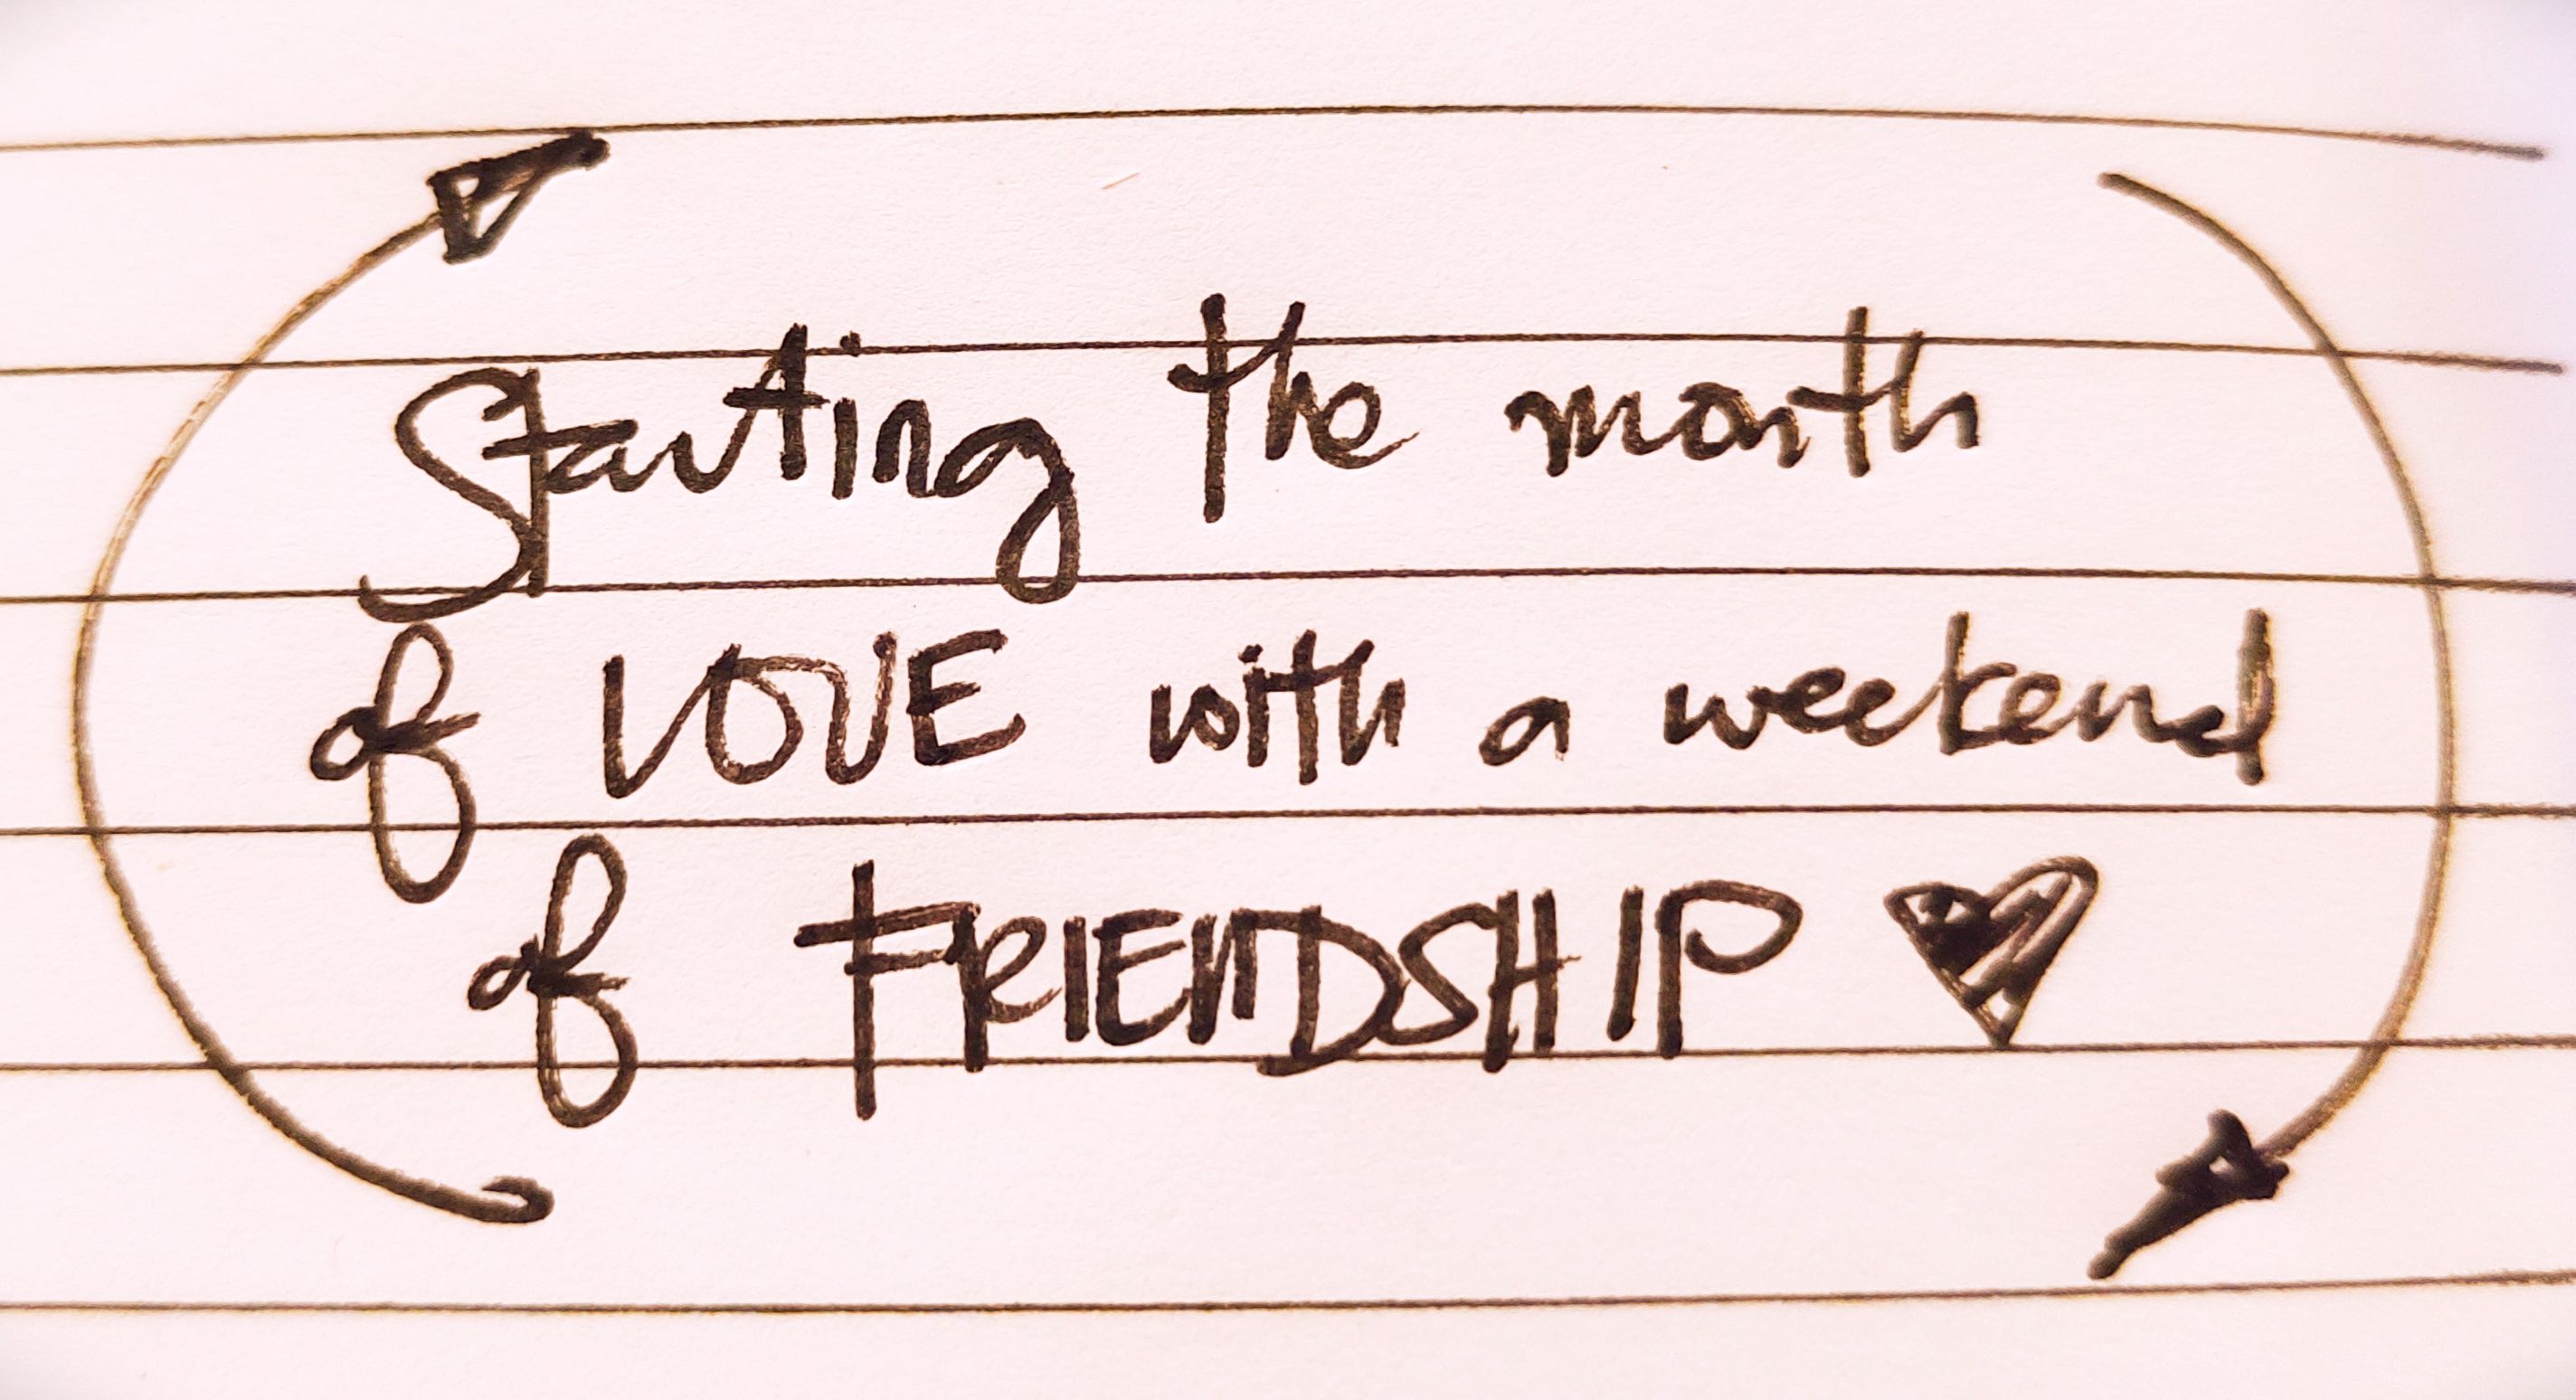 Starting the month
of LOVE with a weekend
of FRIENDSHIP